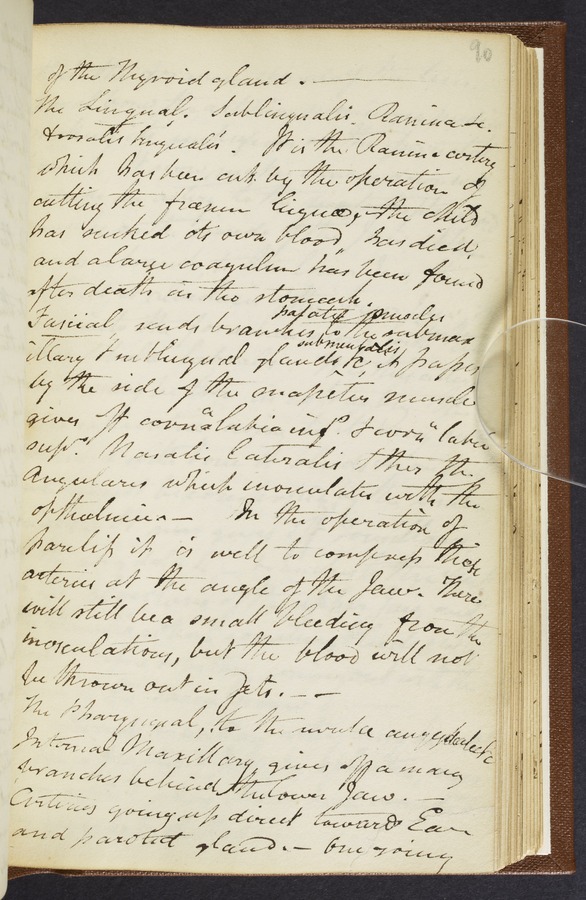 90
of the Thyroid gland. —
The Lingual. Sublingualis. Ranina &c.
& Dorsalis lingualis. It is the Ranine artery
which has been cut by the operation of
cutting the fraenum linguae, the child
has sucked its own blood, has died,
and a large coagulum has been found
after death in the stomach.
palate muscles
Fascial, sends branches to the submax
submentalis
illary & sublingual glands &c, it passes
by the side of the masseter muscle
gives off coron" labia inf.r & coron" labia
sup.r Nasalis lateralis & then the
Angularis which inosculates with the
opthalmic — In the operation of
harelip it is well to compress these
arteries at the angle of the Jaw. There
will still be a small bleeding from the
inosculations, but the blood will not
be thrown out in Jets. — —
The Pharyngeal, to the
Internal Maxillary gives off a many
branches behind the lower Jaw. —
Arteries going up direct towards Ear
and parotid gland — One going